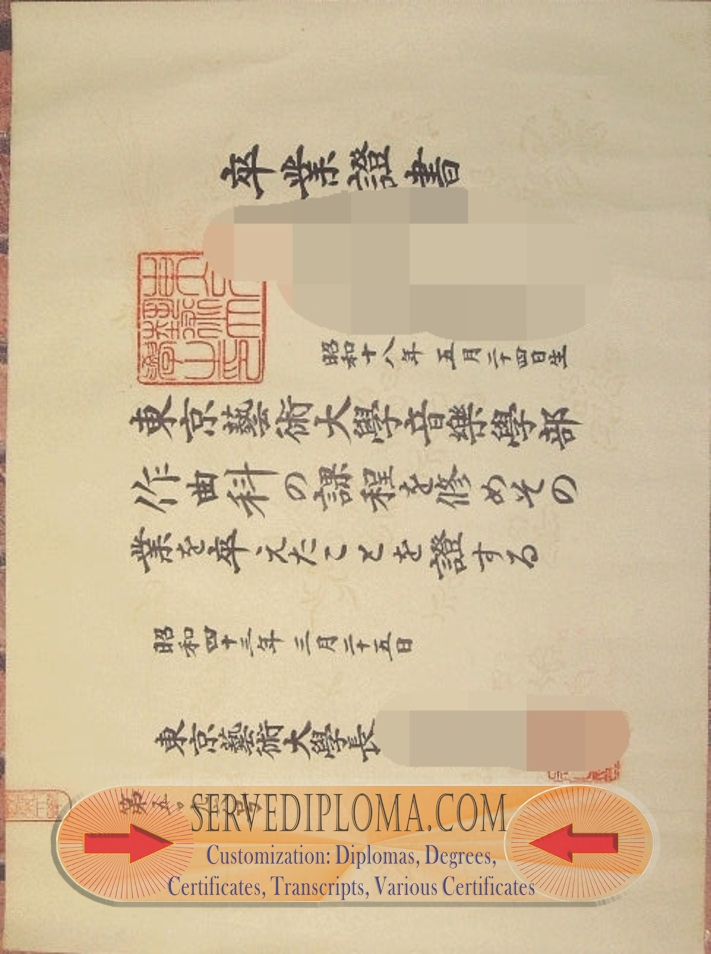 卒業證書
昭和十八年五月二十四日生
東京藝術大學音樂學部
作曲科の課程を修めその
業を卒えたことを證する
昭和四十三年三月二十五日
東京藝術大學長
第五
SERVEDIPLOMA.COM
Customization: Diplomas, Degrees,
Certificates, Transcripts, Various Certificates